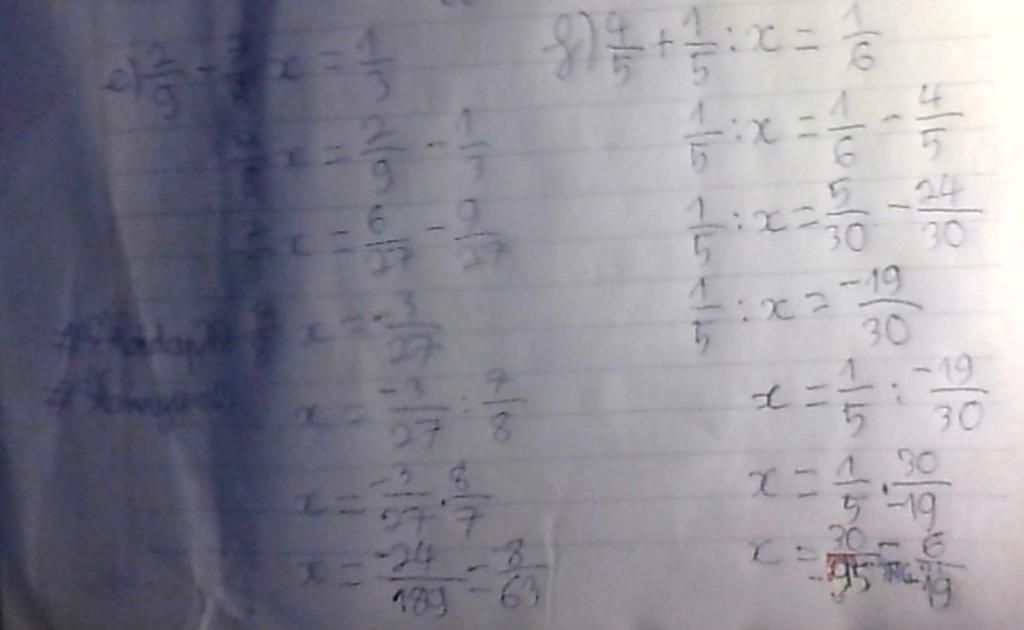 e) 2/9 - 7/8 x = 1/3
x = 2/9 - 1/3
x = 6/27 - 9/27
x = -3/27
x = -3/27 : 7/8
x = -3/27 . 8/7
x = -24/189 = -8/63
f) 4/5 + 1/5 : x = 1/6
1/5 : x = 1/6 - 4/5
1/5 : x = 5/30 - 24/30
1/5 : x = -19/30
x = 1/5 : -19/30
x = 1/5 . 30/-19
x = 30/-95 = 6/-19